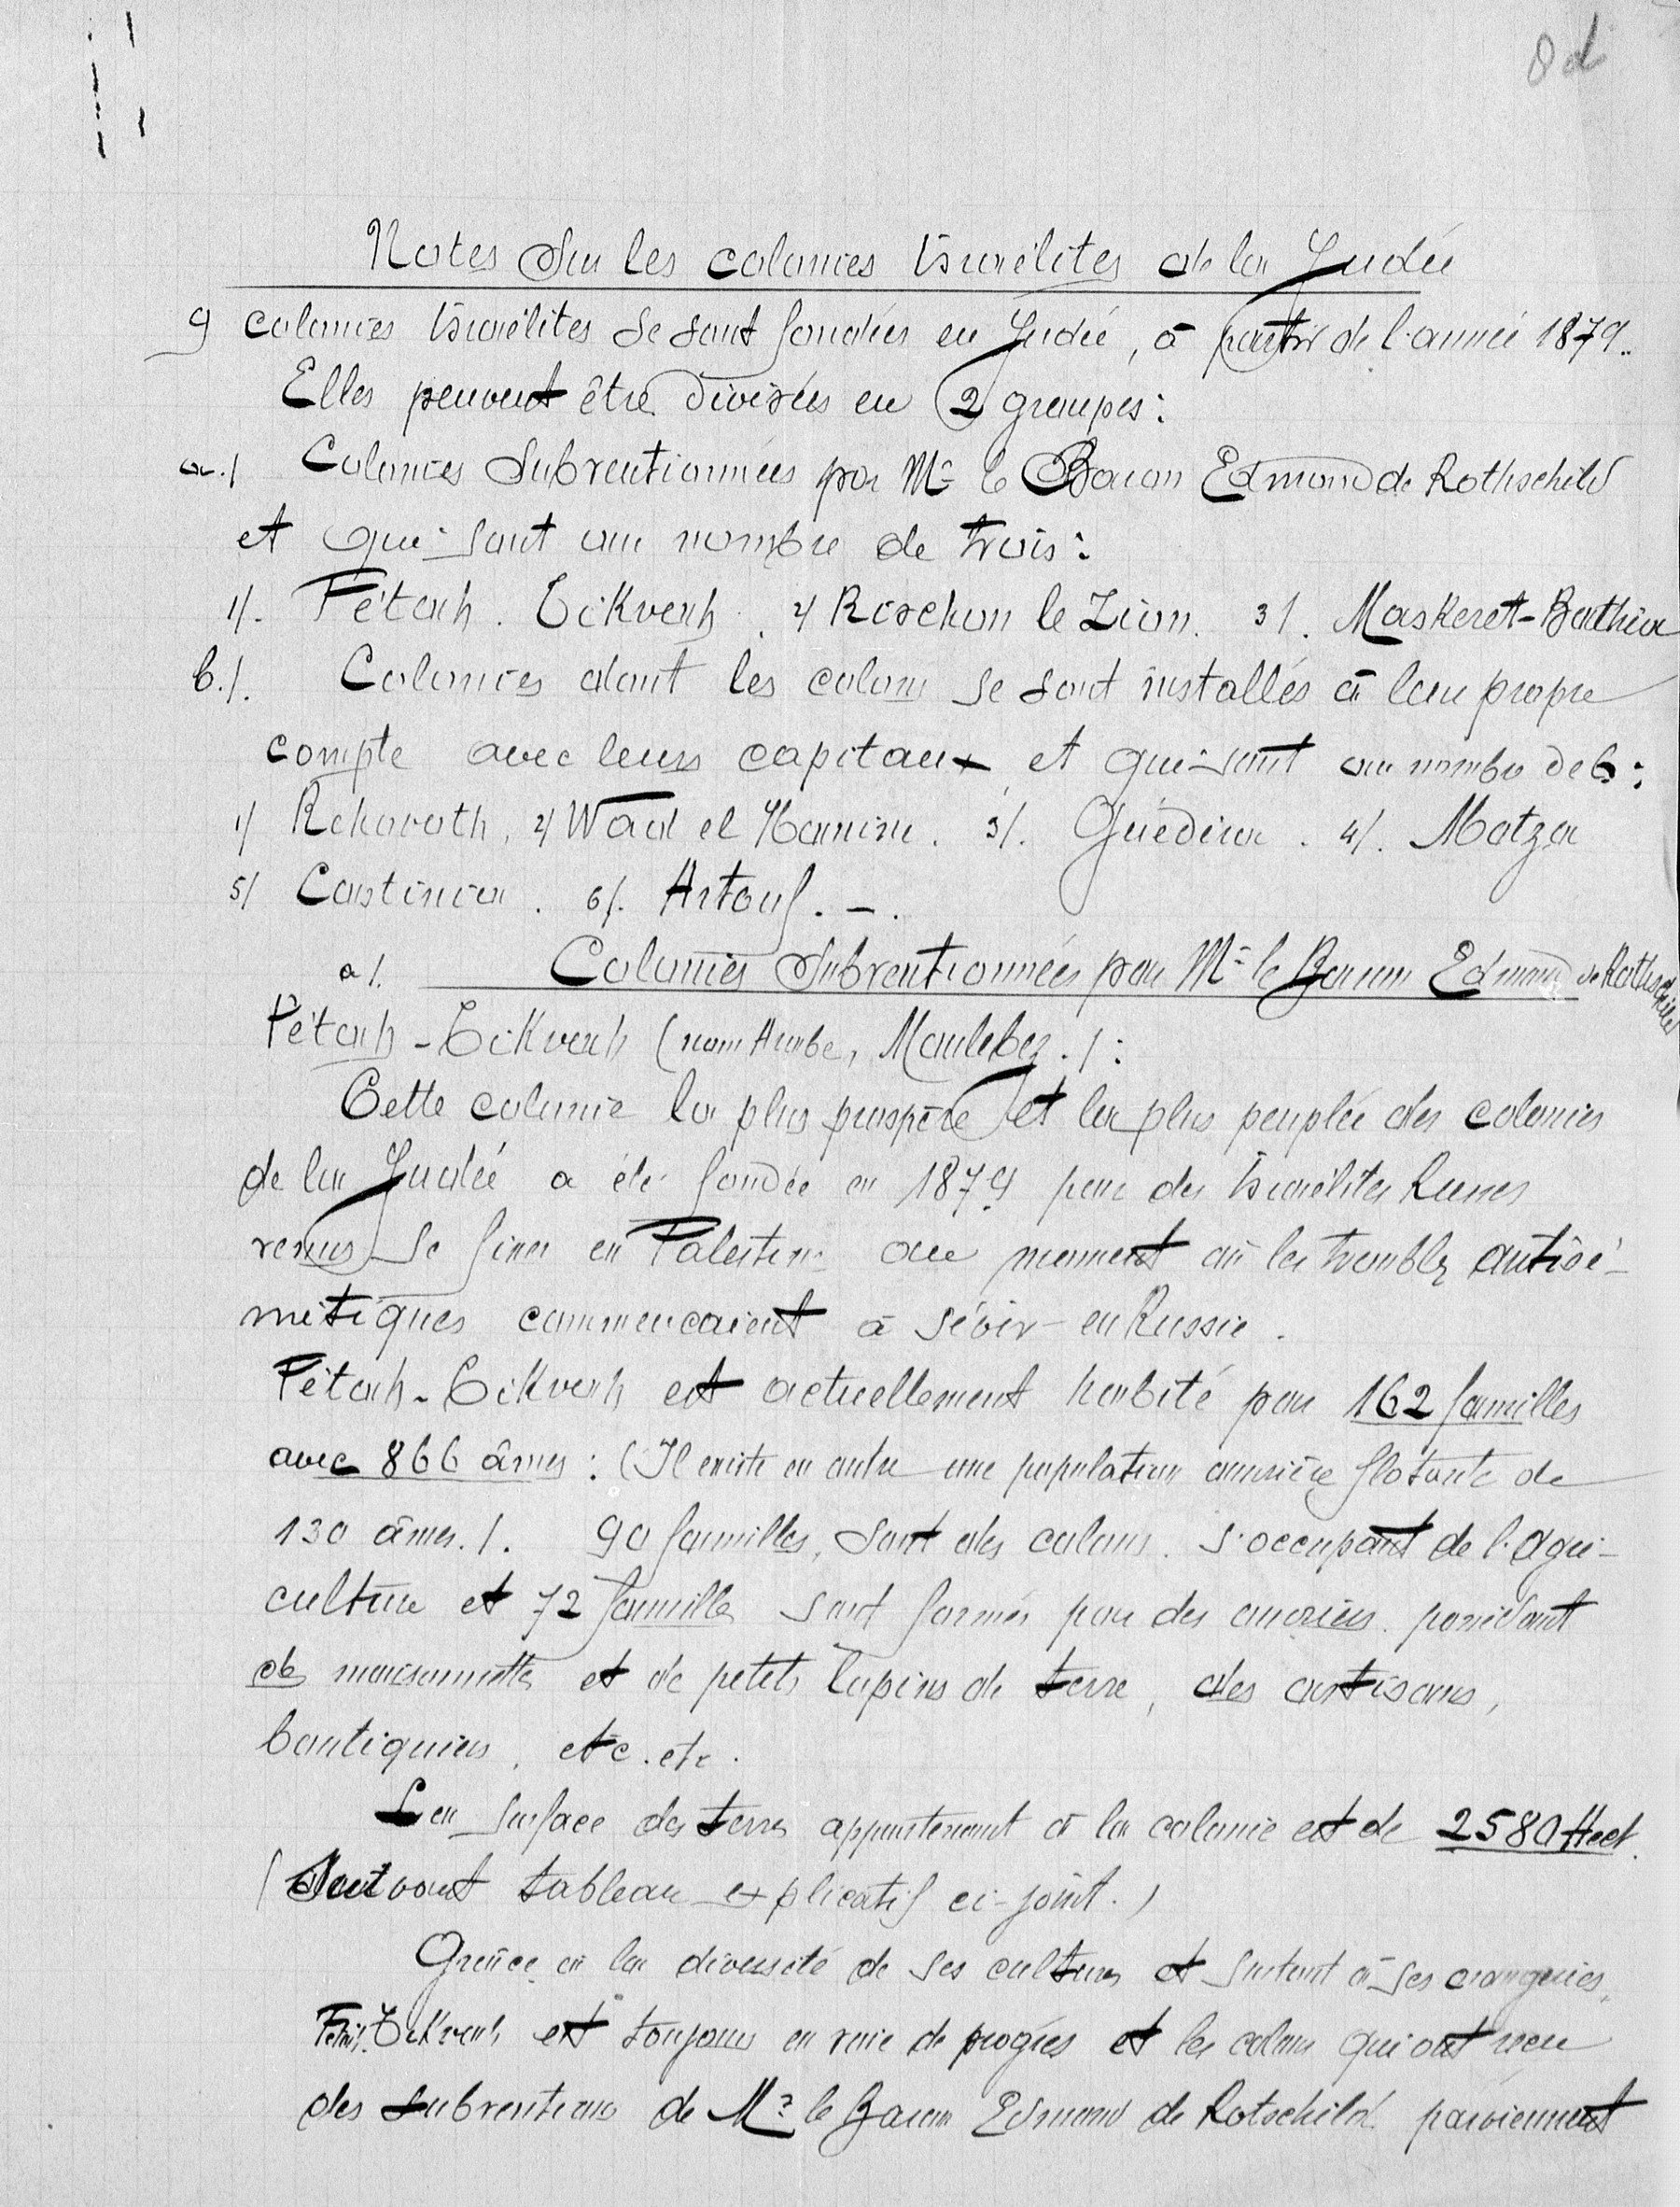 8d
Notes sur les colonies Israélites de la Judée
9 colonies Israélites se sont fondées en Judée, à partir de l'année 1879.
Elles peuvent être divisées en 2 groupes :
a./ Colonies Subventionnées par Mr le Baron Edmond de Rothschild
et qui sont au nombre de trois :
1/. Pétach. Tikvah. 2/ Rischon le Zion. 3/. Maskeret-Bathia
b./. Colonies dont les colons se sont installés à leur propre
compte avec leurs capitaux et qui sont au nombre de 6 :
1/ Rehovoth, 2/ Wad el Hanine. 3/. Guédera. 4/. Motza
5/ Castinia. 6/. Artouf. -.
a/. Colonies Subventionnées par Mr le Baron Edmond de Rothschild
Pétach-Tikvah (nom Arabe, Moulebez./ :
Cette colonie la plus prospère et la plus peuplée des colonies
de la Judée a été fondée en 1879 par des Israélites Russes
venus se fixer en Palestine au moment où les troubles antisé-
mitiques commencaient à sévir en Russie.
Pétach-Tikvah est actuellement habité par 162 familles
avec 866 âmes : (Il existe en outre une population ouvrière flotante de
130 âmes./. 90 familles, sont des colons. s'occupant de l'agri-
culture et 72 familles sont formés par des ouvriers. possédant
de maisonnettes et de petits lupins de terre, des artisans,
boutiquiers, etc. etc.
La surface des terres appartenant à la colonie est de 2580 Hect.
(Suivant tableau explicatif ci-joint.)
Grâce à la diversité de ses cultures et surtout à ses orangeries,
Pétach. Tikvah est toujours en voie de progrès et les colons qui ont reçu
des subventions de Mr le Baron Edmond de Rotschild parviennent